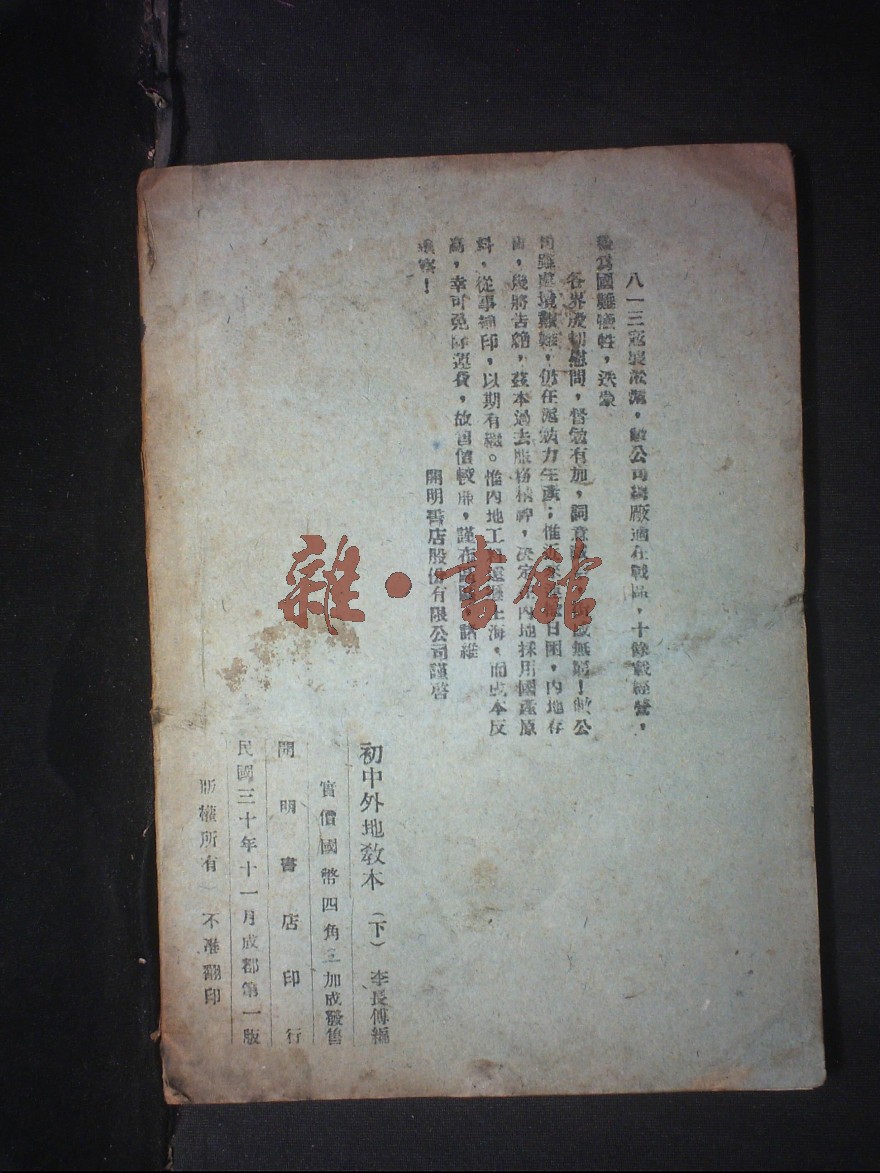 八一三寇襲淞滬，敝公司總廠適在戰區，十餘載經營，
為國難犧牲，迭蒙
各界殷切慰問，督勉有加，詞意
司雖處境艱難，仍在滬勉力生產；惟近
，幾將告絕，茲本過去服務精神，決定 內地採用國產原
料，從事 印，以期有繼。惟內地工 上海，而成本反
高，幸可免除運費，故書價較廉，謹布 ，諸維
垂察！
開明書店股份有限公司謹啓
初中外地教本 （下） 李長傅編
實價國幣四角三加成發售
開明書店印行
民國三十年十一月成都第一版
版權所有 不准翻印
雜·書館